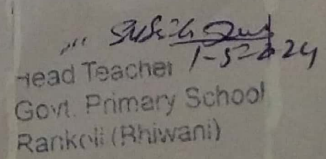 1-5-24
Head Teacher
Govt. Primary School
Rankoli (Bhiwani)